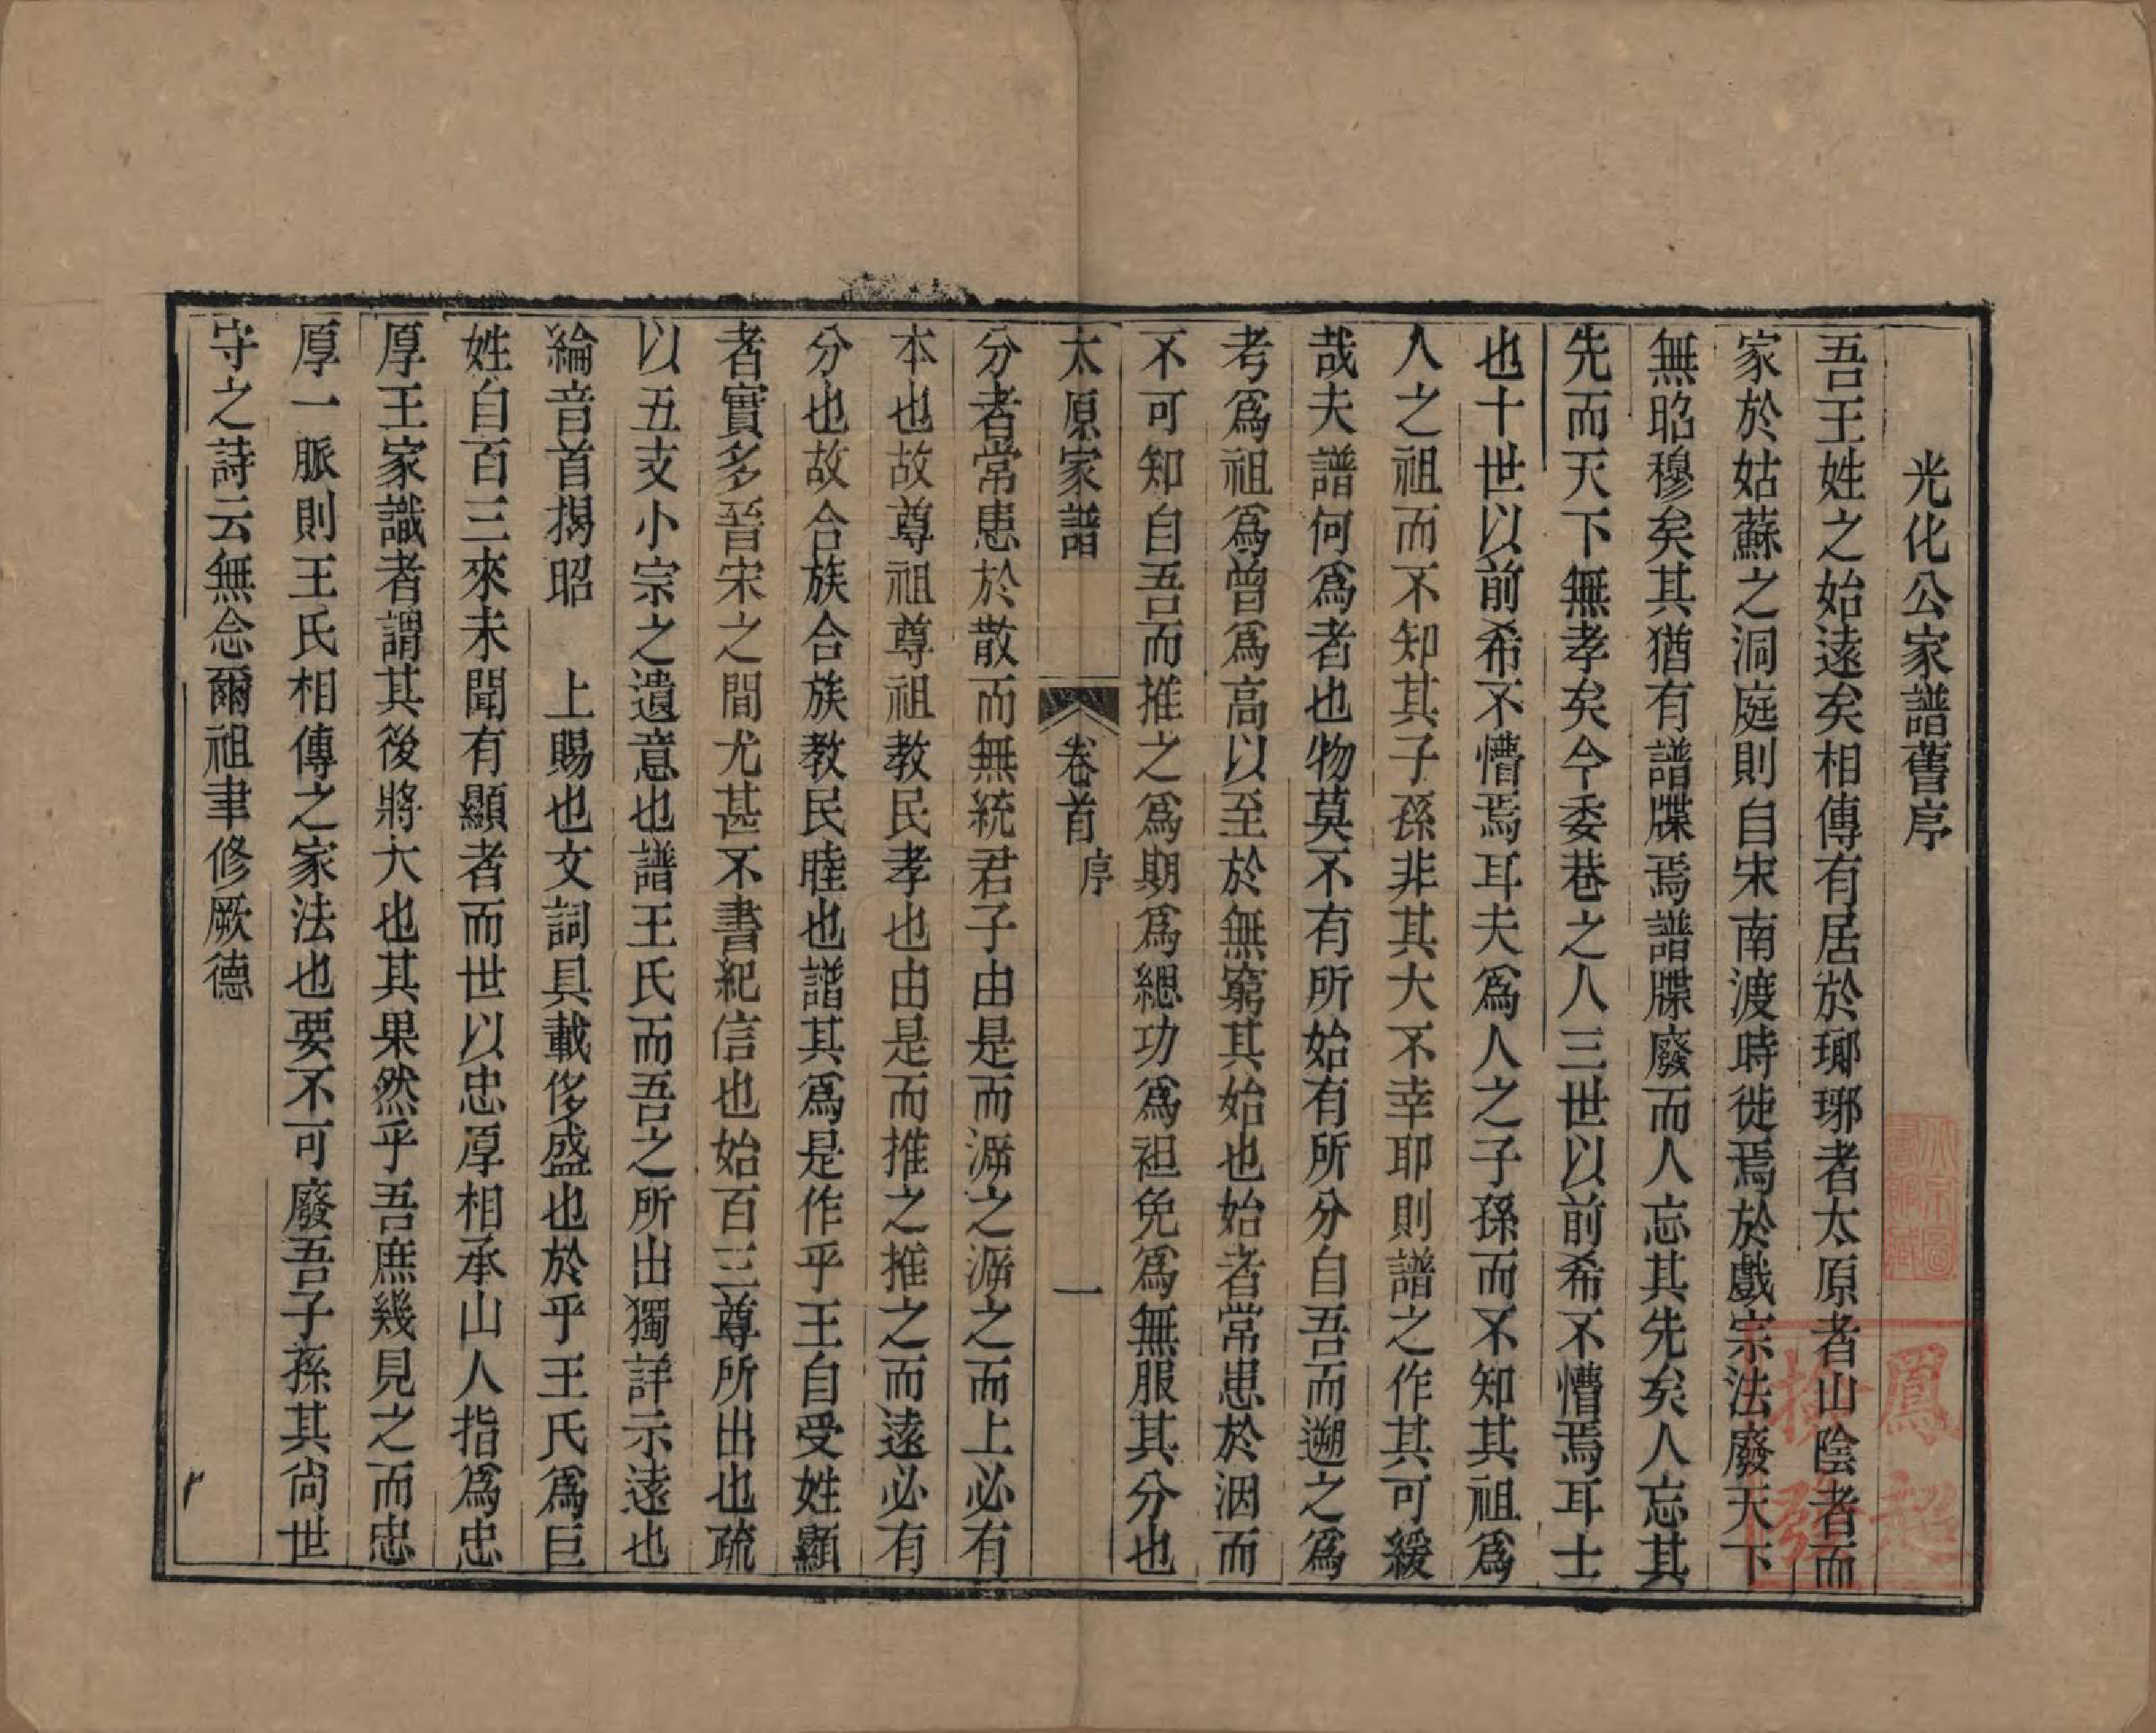 光化公家譜舊序
吾王姓之始遠矣相傳有居於瑯琊者太原者山陰者而
家於姑蘇之洞庭則自宋南渡時徙焉於戲宗法廢天下
無昭穆矣其猶有譜牒焉譜牒廢而人忘其先矣人忘其
先而天下無孝矣今委巷之人三世以前希不懵焉耳士
也十世以前希不懵焉耳夫爲人之子孫而不知其祖爲
人之祖而不知其子孫非其大不幸耶則譜之作其可緩
哉夫譜何爲者也物莫不有所始有所分自吾而遡之爲
考爲祖爲曾爲高以至於無窮其始也始者常患於洇而
不可知自吾而推之爲期爲緦功爲袒免爲無服其分也
太原家譜
卷首
序
一
分者常患於散而無統君子由是而泝之泝之而上必有
本也故尊祖尊祖教民孝也由是而推之推之而遠必有
分也故合族合族教民睦也譜其爲是作乎王自受姓顯
者實多晉宋之間尤甚不書紀信也始百三尊所出也疏
以五支小宗之遺意也譜王氏而吾之所出獨詳示遠也
綸音首揭昭　上賜也文詞具載侈盛也於乎王氏爲巨
姓自百三來未聞有顯者而世以忠厚相承山人指爲忠
厚王家識者謂其後將大也其果然乎吾庶幾見之而忠
厚一脈則王氏相傳之家法也要不可廢吾子孫其尙世
守之詩云無念爾祖聿修厥德
鳳起